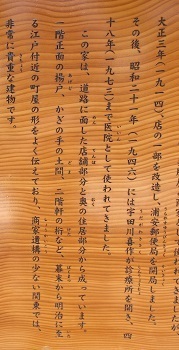 大正三年(一九一四)、店の一部を改造し、浦安郵便局を開局しました。
その後、昭和二十一年(一九四六)には宇田川喜作が診療所を開き、四
十八年(一九七三)まで医院として使われてきました。
この家は、道路に面した店舗部分と奥の住居部分から成っています。
一階正面の揚戸、かぎの手の土間、二階軒の桁など、幕末から明治に至
る江戸付近の町屋の形をよく伝えており、商家遺構の少ない関東では、
非常に貴重な建物です。